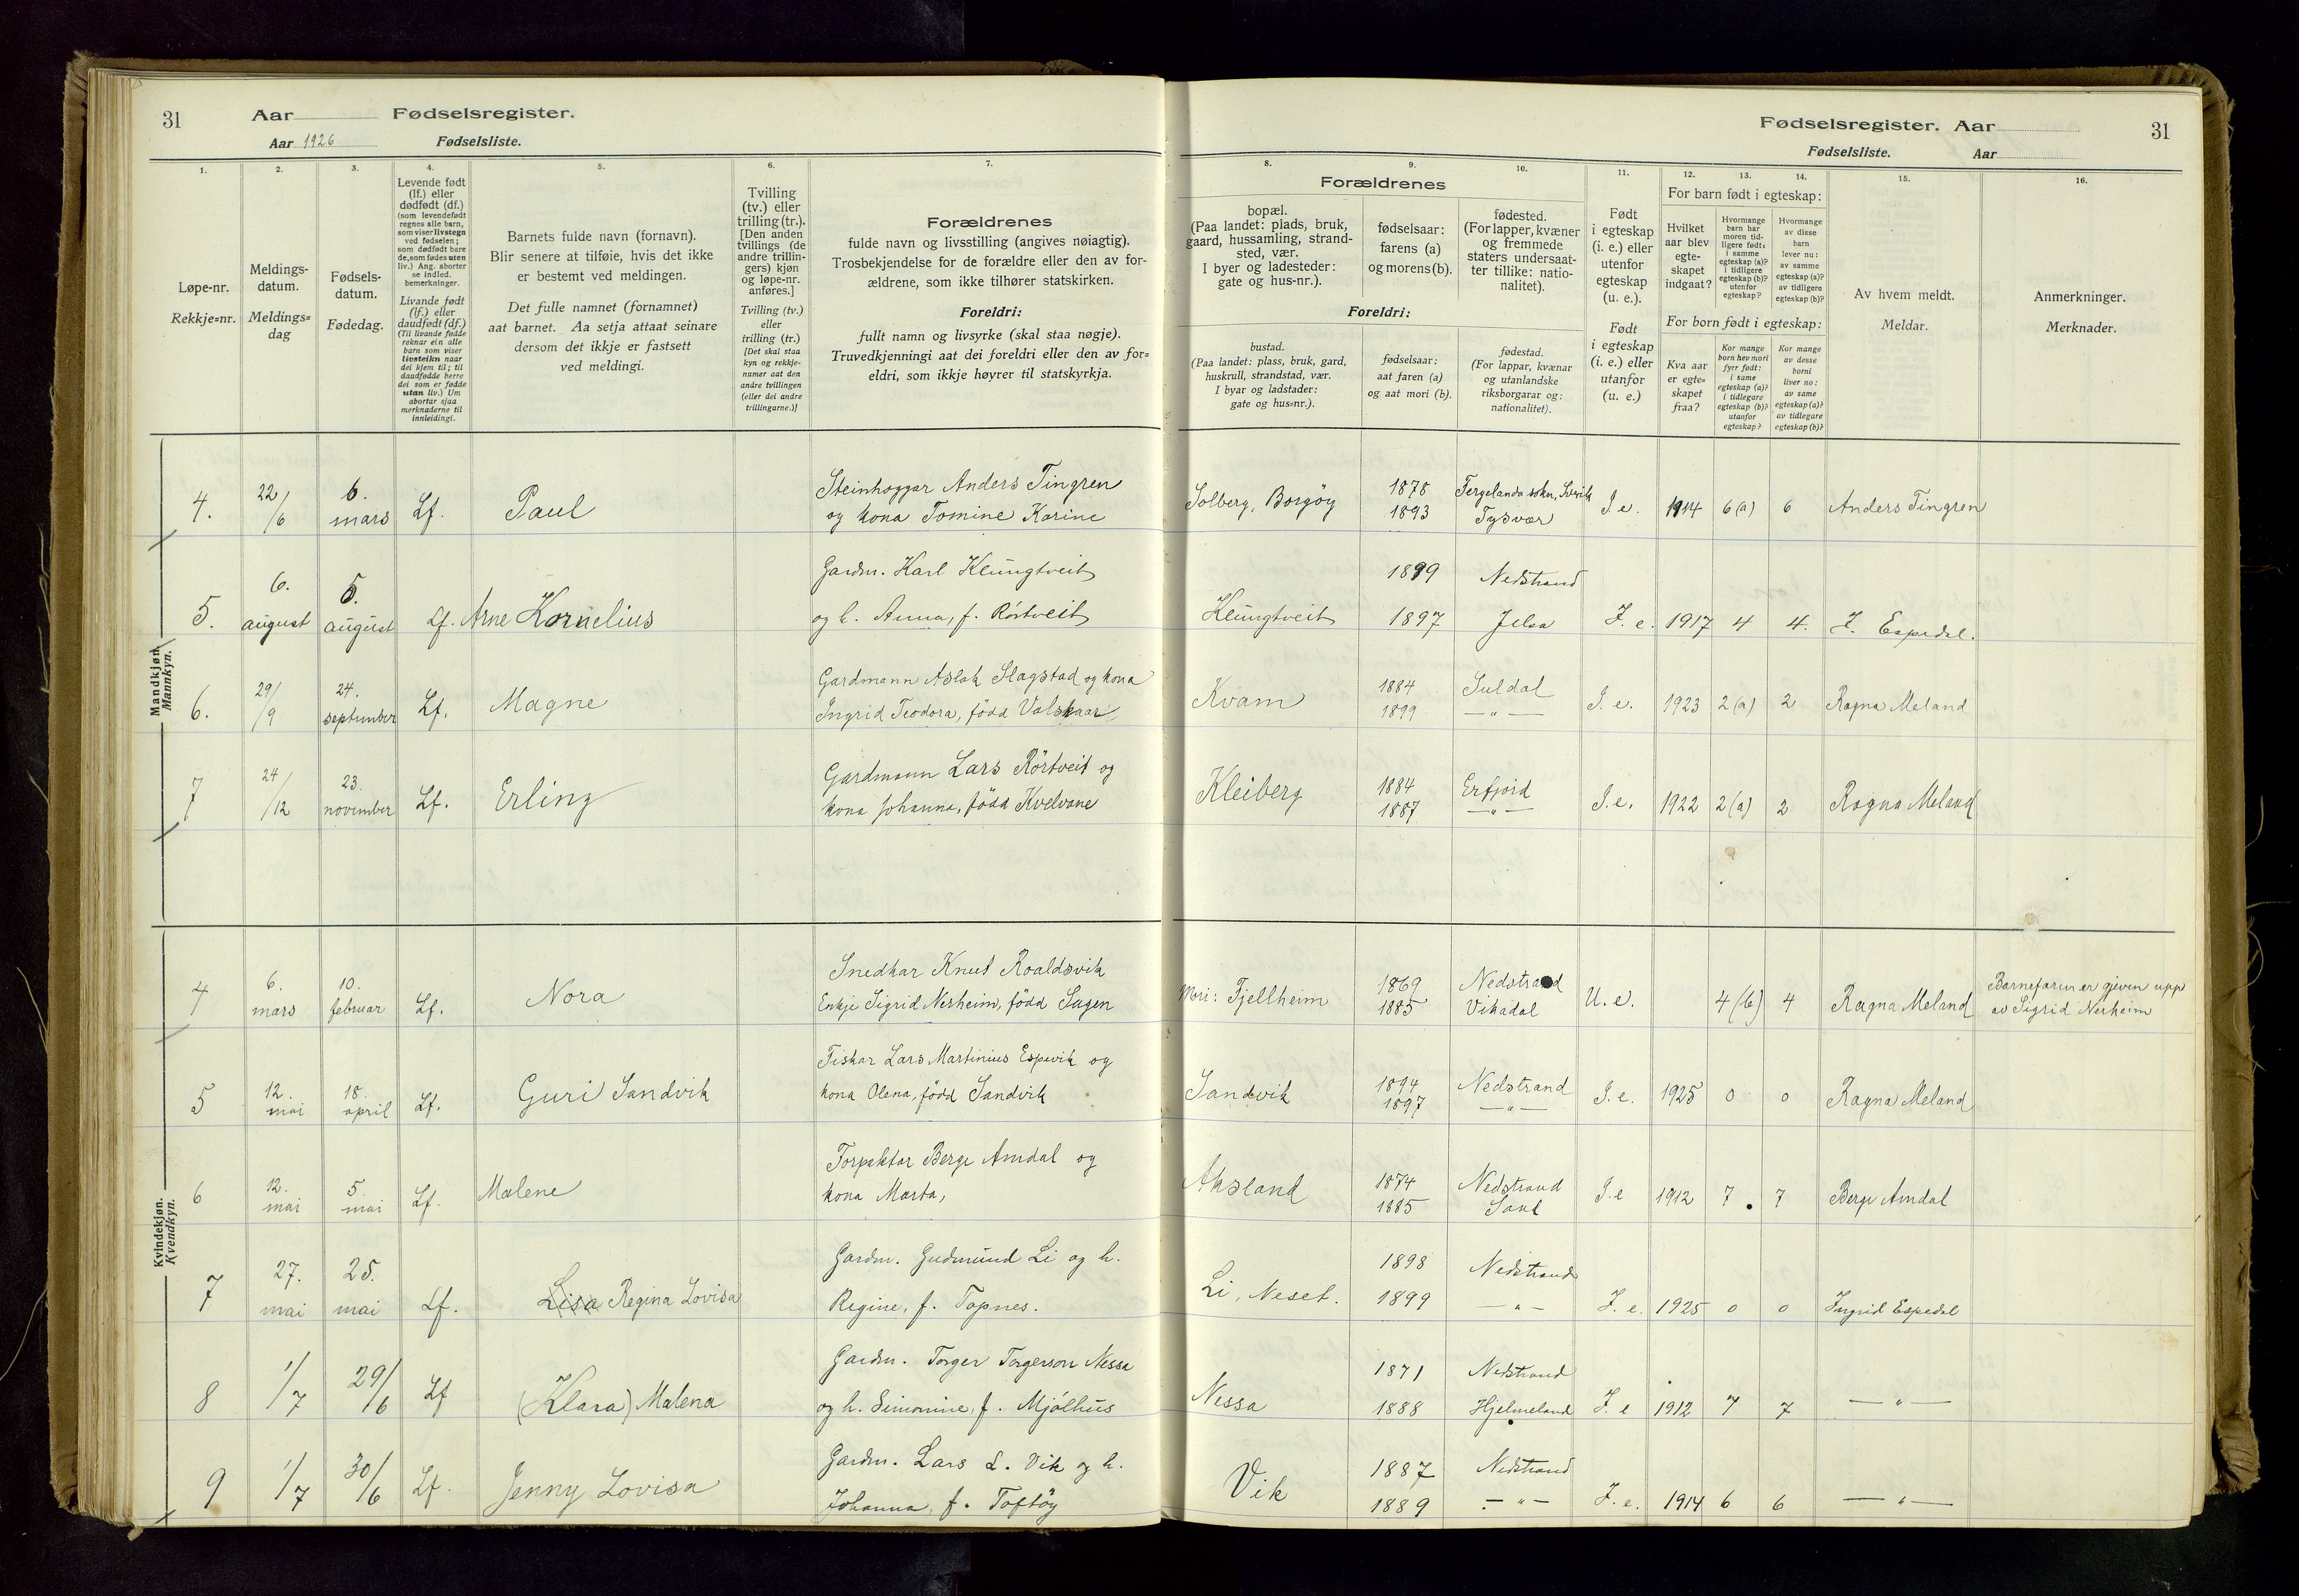 31 Aar Fødselsregister.
Aar 1926 Fødselsliste.
Fødselsregister. Aar 31
Fødselsliste. Aar
1. 2. 3. 4. 5. 6. 7.
Løpe-nr.
Rekkje=nr.
Meldings-
datum.
Meldings=
dag
Fødsels-
datum.
Fødedag.
Levende født
(lf.) eller
dødfødt (df.)
(som levendefødt
regnes alle barn,
som viser livstegn
ved fødselen;
som dødfødt bare
de, som fødes uten
liv.) Ang. aborter
se indled.
bemerkninger.
Livande født
(lf.) eller
daudfødt (df.)
(Til livande fødde
reknar ein alle
barn som viser
livsteikn naar
dei kjem til; til
daudfødde berre
dei som er fødde
utan liv.) Um
abortar sjaa
merknaderne til
innleidingi.
Barnets fulde navn (fornavn).
Blir senere at tilføie, hvis det ikke
er bestemt ved meldingen.
Det fulle namnet (fornamnet)
aat barnet. Aa setja attaat seinare
dersom det ikkje er fastsett
ved meldingi.
Tvilling
(tv.) eller
trilling (tr.).
[Den anden
tvillings (de
andre trillin-
gers) kjøn
og løpe-nr.
anføres.]
Tvilling (tv.)
eller
trilling (tr.)
[Det skal staa
kyn og rekkje-
numer aat den
andre tvillingen
(eller dei andre
trillingarne.)]
Forældrenes
fulde navn og livsstilling (angives nøiagtig).
Trosbekjendelse for de forældre eller den av for-
ældrene, som ikke tilhører statskirken.
Foreldri:
fullt namn og livsyrke (skal staa nøgje).
Truvedkjenningi aat dei foreldri eller den av for=
eldri, som ikkje høyrer til statskyrkja.
8. 9. 10. 11. 12. 13. 14. 15. 16.
Forældrenes
bopæl.
(Paa landet: plads, bruk,
gaard, hussamling, strand-
sted, vær.
I byer og ladesteder:
gate og hus-nr.).
fødselsaar:
farens (a)
og morens (b).
fødested.
(For lapper, kvæner
og fremmede
staters undersaat-
ter tillike: natio-
nalitet).
Foreldri:
bustad.
(Paa landet: plass, bruk, gard,
huskrull, strandstad, vær.
I byar og ladstader:
gate og hus=nr.).
fødselsaar:
aat faren (a)
og aat mori (b).
fødestad.
(For lappar, kvænar
og utanlandske
riksborgarar og:
nationalitet).
Født
i egteskap
(i. e.) eller
utenfor
egteskap
(u. e.).
Født
i egteskap
(i. e.) eller
utanfor
(u. e.)
For barn født i egteskap:
Hvilket
aar blev
egte-
skapet
indgaat?
Hvormange
barn har
moren tid-
ligere født:
i samme
egteskap (a)?
i tidligere
egteskap (b)?
utenfor
egteskap?
Hvormange
av disse
barn
lever nu:
av samme
egteskap (a)?
av tidligere
egteskap (b)?
For born født i egteskap:
Kva aar
er egte=
skapet
fraa?
Kor mange
born hev mori
fyrr født:
i same
egteskap (a)?
i tidlegare
egteskap (b)?
utanfor
egteskap?
Kor mange
av desse
borni
liver no:
av same
egteskap (a)?
av tidlegare
egteskap (b)?
Av hvem meldt.
Meldar.
Anmerkninger.
Merknader.
Mandkjøn.
Mannkyn.
4. 22/6 6. mars Lf. Paul
Steinhoggar Anders Tingren
og kona Tomine Karine
Solberg, Borgöy 1878 1893
Tysvær I. e. 1914 6 (a) 6 Anders Tingren
5. 6. august 5. august Lf. Arne Kornelius
Gardm. Karl Klungtveit
og h. Anna, f. Rörtveit
Klungtveit 1899 1897 Nedstrand Jelsa I. e. 1917 4 4. I. Espedal.
6. 29/9 24. september Lf. Magne
Gardmann Aslak Slagstad og kona
Ingrid Teodora, född Valskaar
Kvam 1884 1899 Suldal — " — I. e. 1923 2 (a) 2 Ragna Meland
7 24/12 23. november Lf. Erling
Gardmann Lars Rörtveit og
kona Johanna, född Kvelvane
Kleiberg 1884 1887 Erfjord — " — I. e. 1922 2 (a) 2 Ragna Meland
Kvindekjøn.
Kvendkyn.
4 6. mars 10. februar Lf. Nora
Snedkar Knut Roaldsvik
Enkje Sigrid Nerheim, född Sugen
Mori: Fjellheim 1869 1885 Nedstrand Vikadal U. e. 4 (b) 4 Ragna Meland
Barnefaren er given upp
av Sigrid Nerheim
5 12. mai 18. april Lf. Guri Sandvik
Fiskar Lars Martinius Espevik og
kona Olena, född Sandvik
Sandvik 1894 1897 Nedstrand — " — I. e. 1925 0 0 Ragna Meland
6 12. mai 5. mai Lf. Malene
Forpaktar Berge Amdal og
kona Marta,
Aksland 1874 1885 Nedstrand I. e 1912 7 7 Berge Amdal
7 27. mai 25. mai Lf. Lisa Regina Lovisa
Gardm. Gudmund Li og h.
Regine, f. Topnes.
Li, Neset. 1898 1899 Nedstrand — " — I. e. 1925 0 0 Ingrid Espedal
8 1/7 29/6 Lf (Klara) Malena
Gardm. Torger Torgerson Nessa
og h. Simonine, f. Mjölhus
Nessa 1871 1888 Nedstrand Hjelmeland I. e 1912 7 7 — " —
9 1/7 30/6 Lf. Jenny Lovisa
Gardm. Lars L. Vik og h.
Johanna, f. Toftöy
Vik 1887 1889 Nedstrand — " — I. e. 1914 6 6 — " —